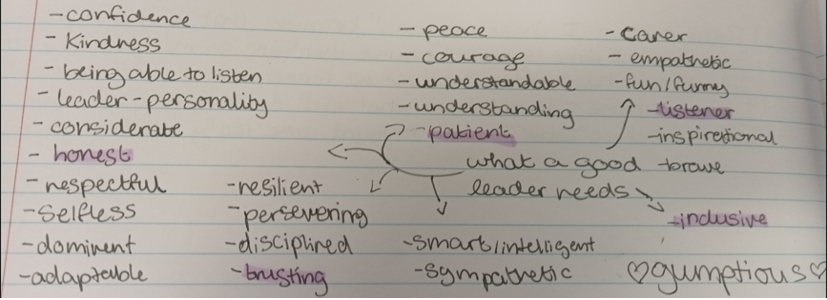 -confidence
- Kindness
- being able to listen
- leader-personality
- considerate
- honest
- respectful
-selfless
-dominent
-adaptable
-resilient
-persevering
-disciplined
-trusting
- peace
- courage
-understandable
-understanding
-patient
what a good
leader needs
-smart/intelligent
-sympathetic
- carer
- empathetic
-fun/funny
-listener
-inspirational
-brave
-inclusive
♡gumptious♡